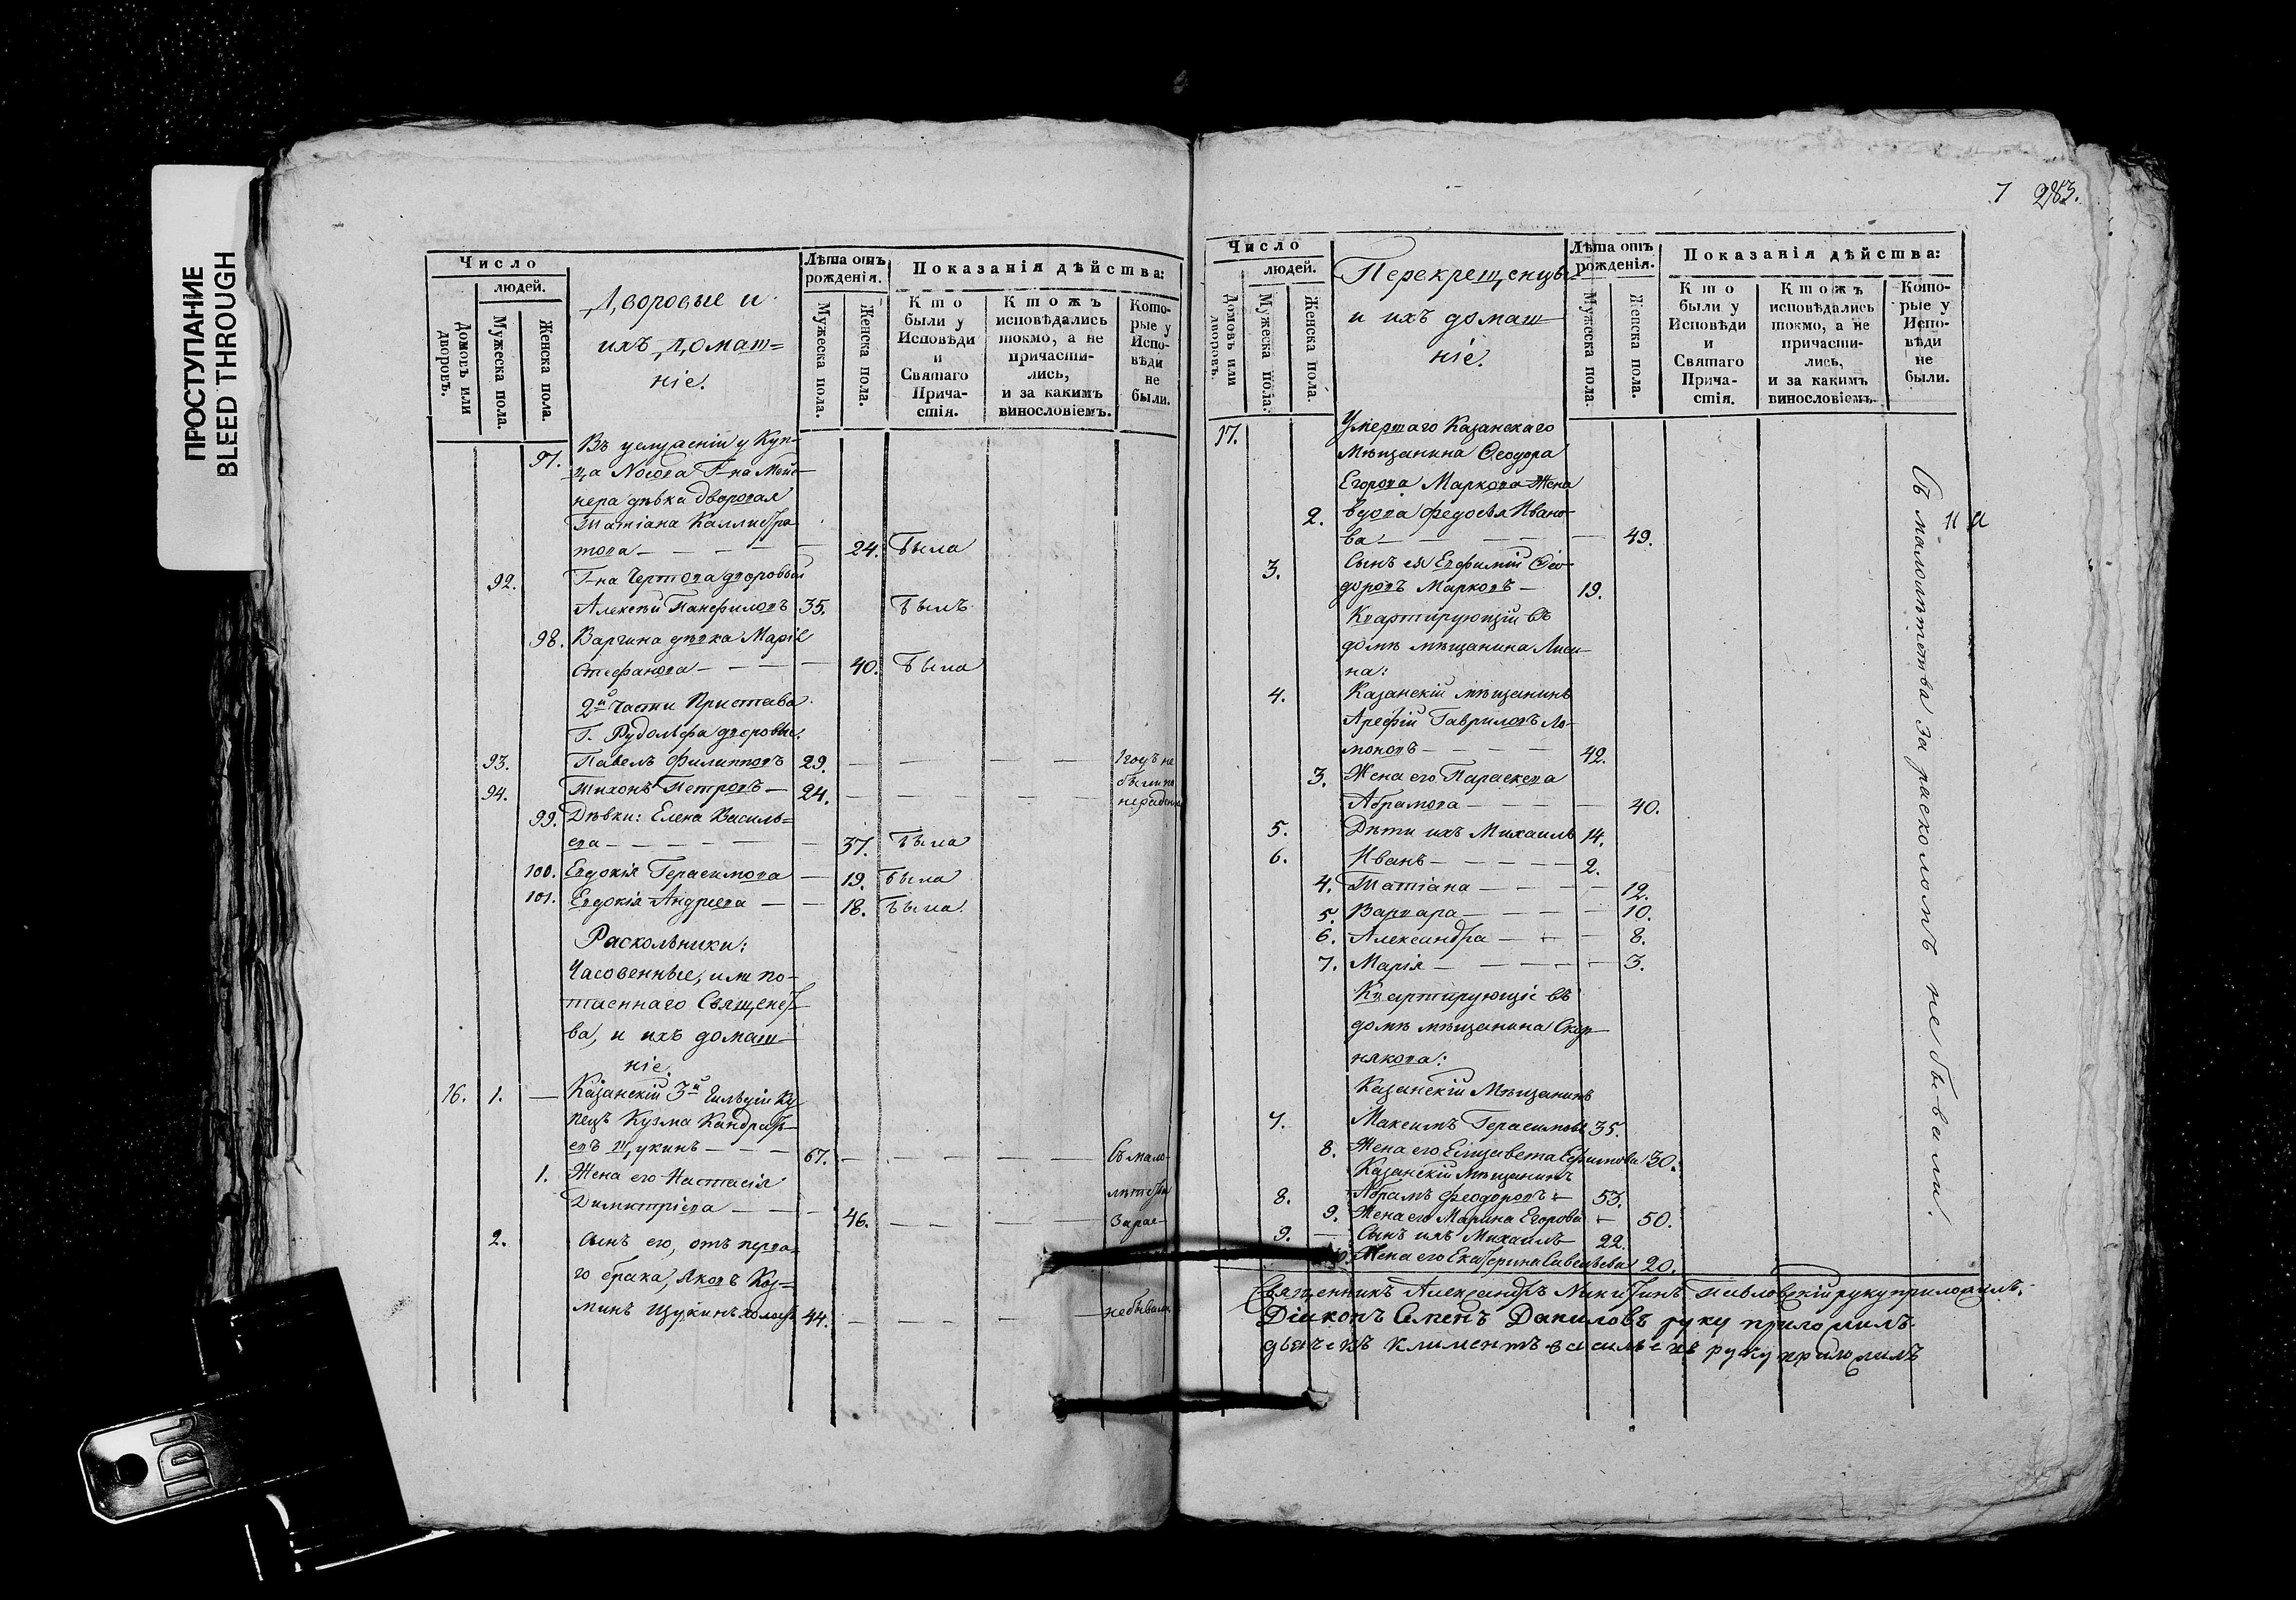 ПРОСТУПАНИЕ
BLEED THROUGH
Число
людей.
Домовъ или дворовъ.
Мужеска пола.
Женска пола.
Дворовые и
ихъ домаш=
ніе.
Лѣта отъ
рожденія.
Мужеска пола.
Женска пола.
Показанія дѣйства:
Кто
были у
Исповѣди
и
Святаго
Прича-
стія.
Ктожъ
исповѣдались
токмо, а не
причасти-
лись,
и за какимъ
винословіемъ.
Кото-
рые у
Испо-
вѣди
не
были.
97. Въ услуженіи у Куп-
ца Носова Г-на Мей-
нера дѣвка дворовая
Татіана Каллистра
това — 24. Была
92. Г-на Чертова дворовый
Алексѣй Панфиловъ 35. Былъ
98. Варгина дѣвка Марія
Стефанова — 40. Была
2й Части Пристава
Г. Рудольфа дворовые:
93. Павелъ Филипповъ 29. — 1 годъ не
94. Тихонъ Петровъ — 24. — были по
нерадѣнію
99. Дѣвки: Елена Василь=
ева — 37. Была
100. Евдокія Герасимова — 19. Была
101. Евдокія Андреева — 18. Была.
Раскольники:
Часовенные, или по-
таеннаго Священст-
ва, и ихъ домаш-
ніе.
16. 1. — Казанскій 3й Гильдіи Ку
пецъ Кузма Кандрать
евъ Щукинъ — 67. — Съ мало-
1. Жена его Настасія
лѣтства
Димитріева — 46. — За рас-
2. Сынъ его, отъ перва-
го брака, Яковъ Коз=
минъ Щукинъ холостъ 44. — небывали
7 283.
Число
людей.
Домовъ или дворовъ.
Мужеска пола.
Женска пола.
Перекрещенцы
и ихъ домаш
ніе.
Лѣта отъ
рожденія.
Мужеска пола.
Женска пола.
Показанія дѣйства:
Кто
были у
Исповѣди
и
Святаго
Прича-
стія.
Ктожъ
исповѣдались
токмо, а не
причасти-
лись,
и за какимъ
винословіемъ.
Кото-
рые у
Испо-
вѣди
не
были.
17. Умершаго Казанскаго
Мѣщанина Ѳеодора
Егорова Маркова Жена
2. вдова Федосья Ивано-
ва — 49.
3. Сынъ ея Евфимій Ѳео-
доровъ Марковъ — 19.
Квартирующій въ
домѣ мѣщанина Лиси-
на:
4. Казанскій мѣщанинъ
Арефій Гавриловъ Ло-
моновъ — 42.
3. Жена его Параскева
Абрамова — 40.
5. Дѣти ихъ Михаилъ 14.
6. Иванъ — 2.
4. Татіана — 12.
5. Варвара — 10.
6. Александра — 8.
7. Марія — 3.
Квартирующіе въ
домѣ мѣщанина Скор-
някова:
Казанскій Мѣщанинъ
7. Максимъ Герасимовъ 35.
8. Жена его Елисавета Ефимова 30.
Казанскій Мѣщанинъ
8. Абрамъ Феодоровъ — 53.
9. Жена его Марина Егорова — 50.
9. — Сынъ ихъ Михаилъ 22.
Жена его Екатерина Савельева 20.
Съ малолѣтства за расколомъ не бывали.
Священникъ Александръ Никитинъ Павловскій руку приложилъ.
Діаконъ Семенъ Даниловъ руку приложилъ
дьячекъ Климентъ Васильевъ руку приложилъ